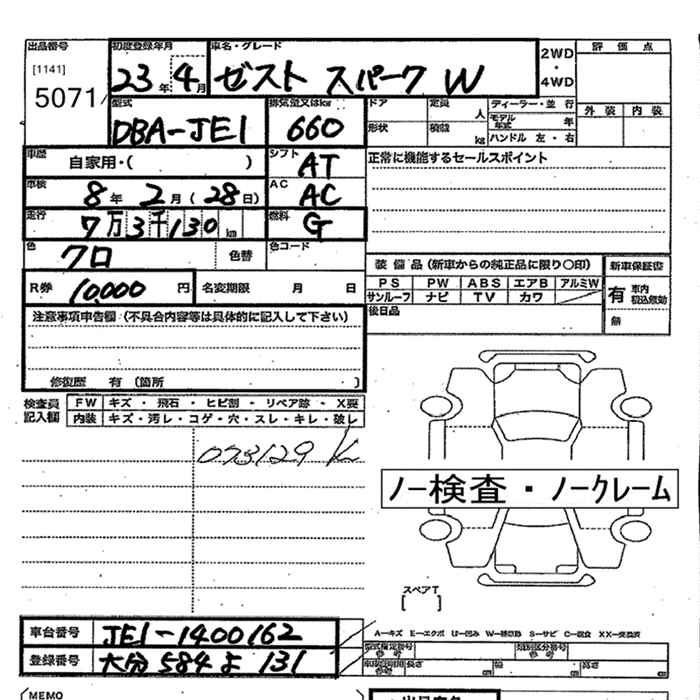 出品番号 初度登録年月 車名・グレード 2WD・4WD 評価点
[1141] 5071 23年 4月 ゼスト スパーク W
型式 排気量又はkw ドア 定員 人 ディーラー・並行 外装 内装
DBA-JE1 660 形状 積載 kg モデル年式 年 ハンドル 左・右
車歴 自家用・( ) シフト AT 正常に機能するセールスポイント
車検 8年 2月 (28日) AC AC
走行 7万3千130km 燃料 G
色 クロ 色替 色コード
装備品 (新車からの純正品に限り○印) 新車保証書
R券 10,000円 名変期限 月 日 PS PW ABS エアB アルミW 有 車内
サンルーフ ナビ TV カワ 税込無効
注意事項申告欄 (不具合内容等は具体的に記入して下さい) 後日品 無
修復歴 有 (箇所 )
検査員記入欄 FW キズ・飛石・ヒビ割・リペア跡・X要
内装 キズ・汚レ・コゲ・穴・スレ・キレ・破レ
073129 K
ノー検査・ノークレーム
スペアT
[ ]
車台番号 JE1-1400162
登録番号 大分 584 よ 131
A-キズ E-エクボ U-凹み S-サビ C-腐食 XX-交換済
型式指定番号 類別区分番号
長さ cm 幅 cm 高さ cm
(MEMO